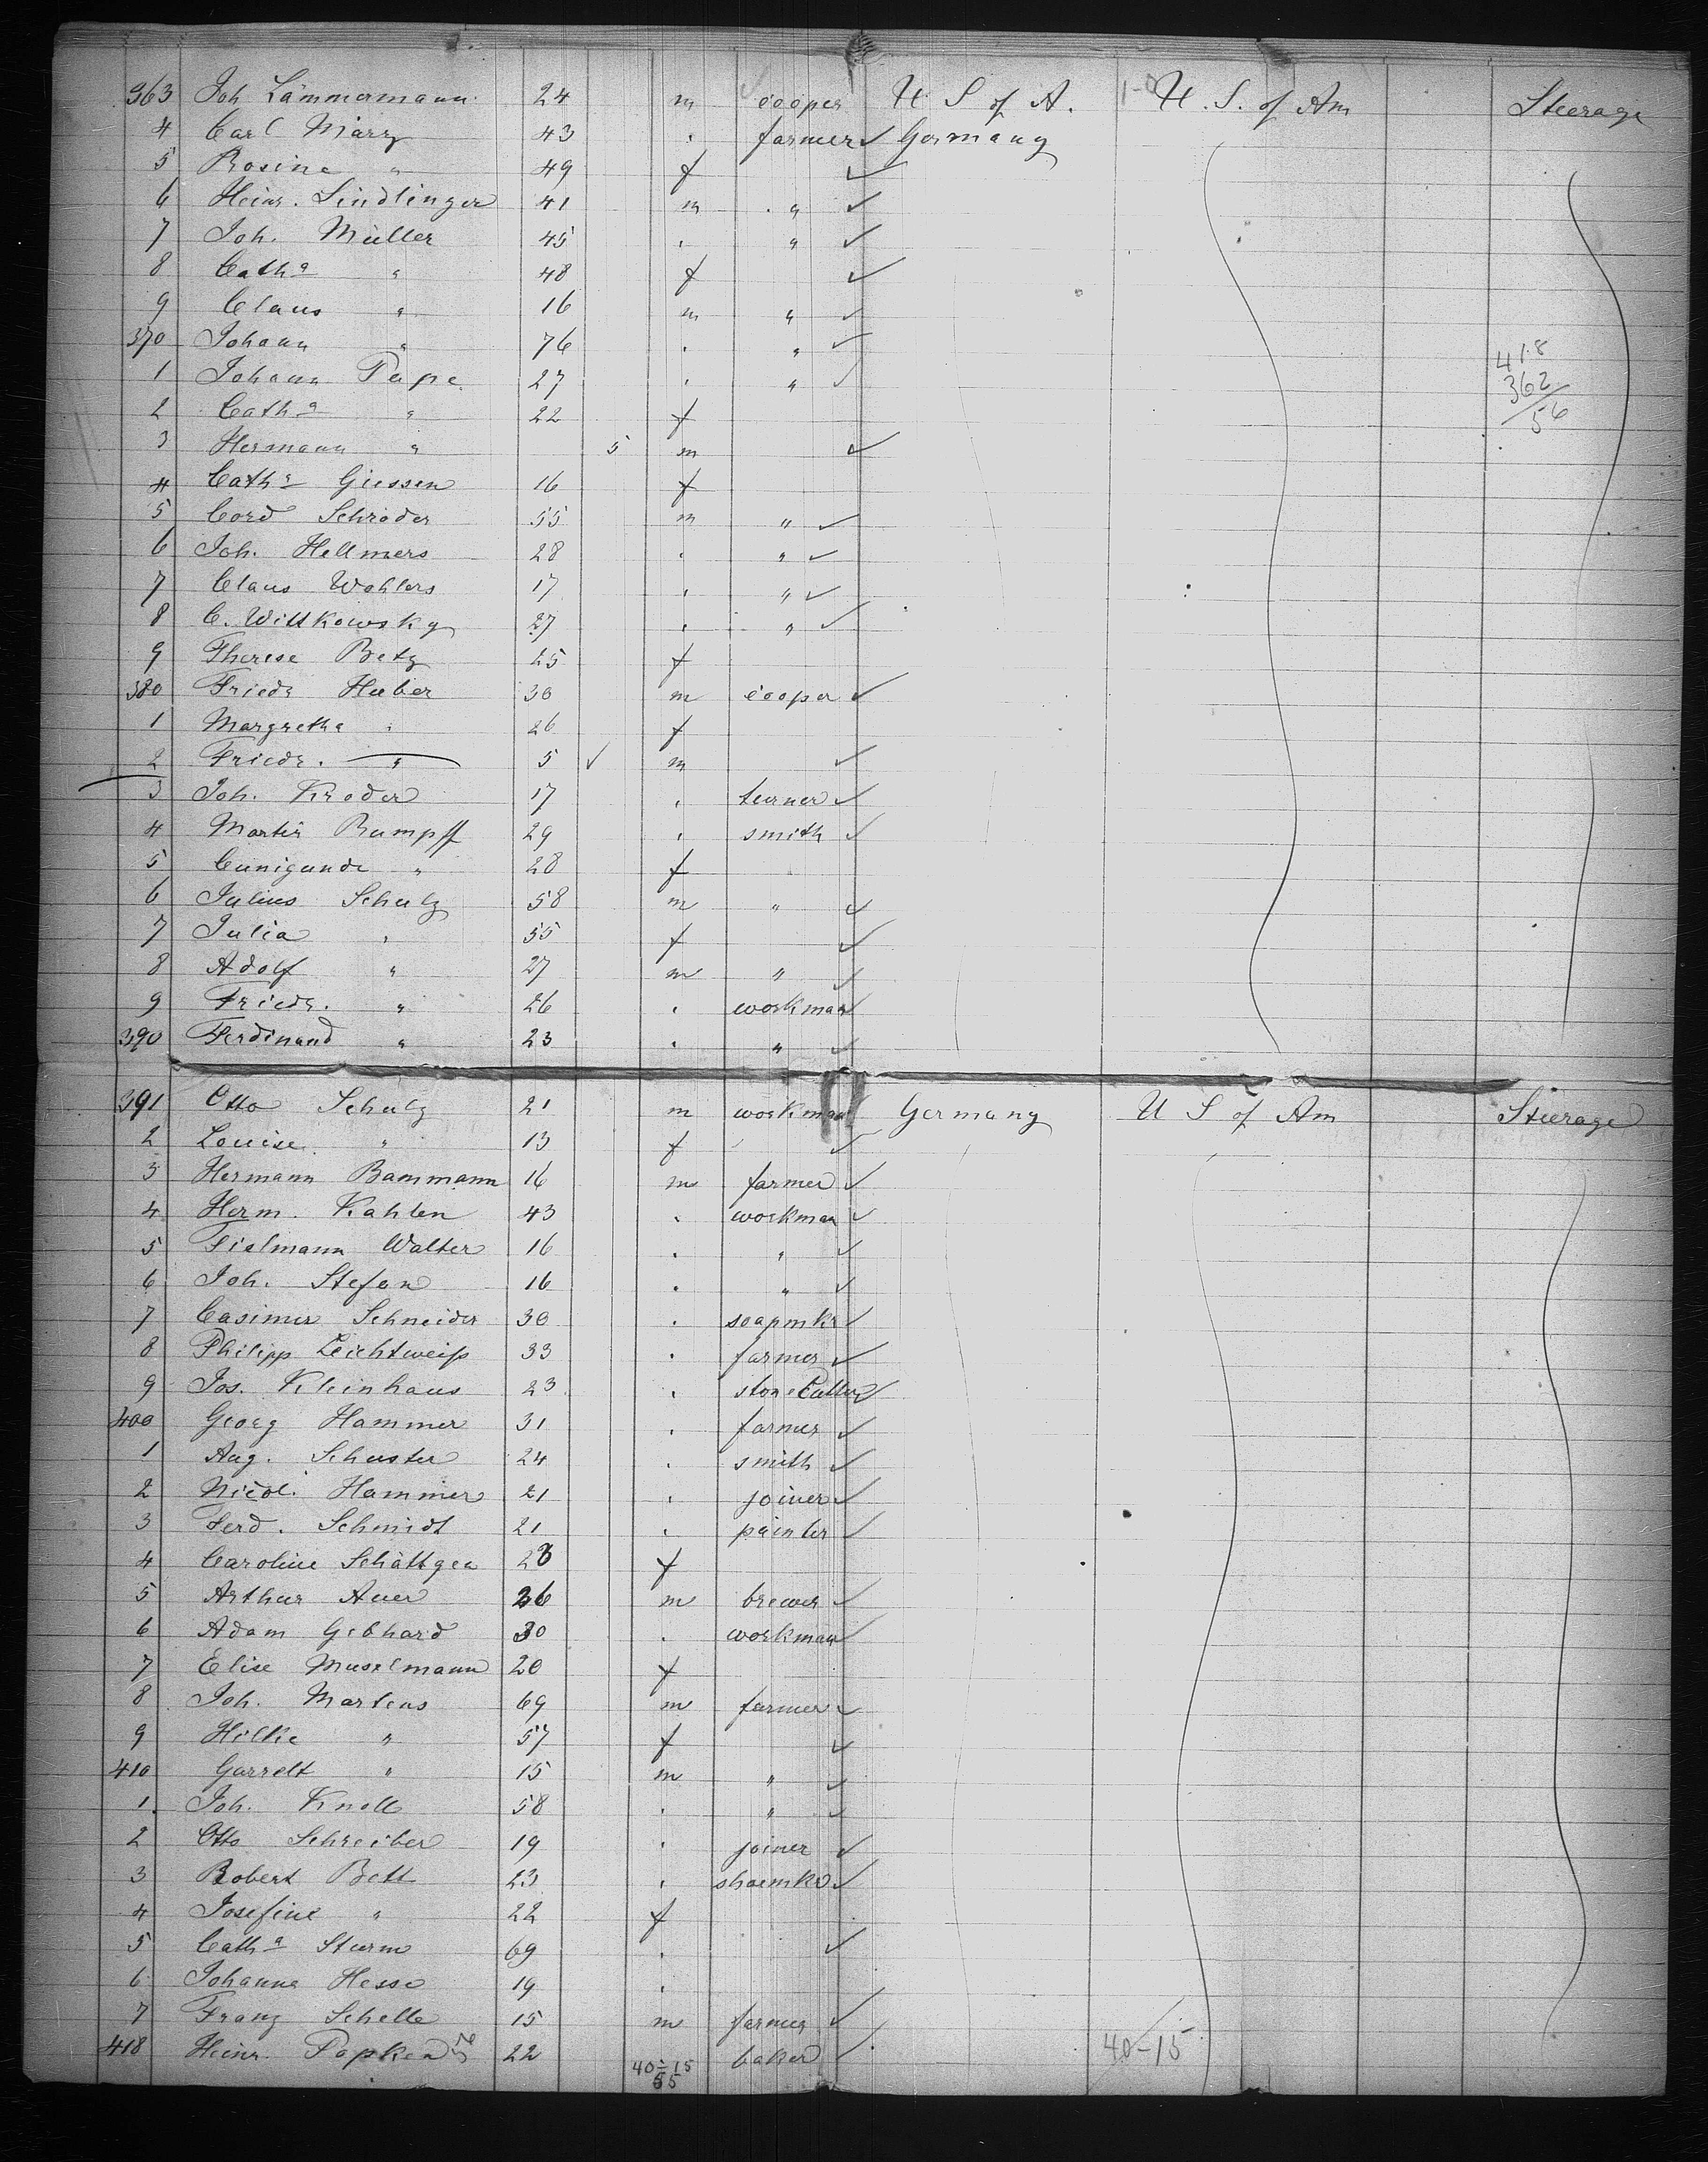 363 Joh Lämmermann 24 m cooper U. S of A. U. S. of Am Steerage
4 Carl März 43 " farmer Germany
5 Rosine " 49 f
6 Heinr. Lindlinger 41 m "
7 Joh. Müller 45 " "
8 Cath a " 48 f
9 Claus " 16 m "
370 Johann " 76 " "
1 Johann Pape 27 " "
2 Cath a " 22 f
3 Hermann " 5 m
4 Cath a Giessen 16 f
5 Cord Schröder 55 m "
6 Joh. Hellmers 28 " "
7 Claus Wohlers 17 " "
8 C. Wittkowsky 27 " "
9 Therese Betz 25 f
380 Friedr Huber 30 m cooper
1 Margretha " 26 f
2 Friedr. " 5 m
3 Joh. Kroder 17 " turner
4 Martin Rumpff 29 " smith
5 Cunigunde " 28 f
6 Julius Schulz 58 m "
7 Julia " 55 f
8 Adolf " 27 m "
9 Friedr. " 26 " workman
390 Ferdinand " 23 " "
418
362
56
391 Otto Schulz 21 m workman Germany U S of Am Steerage
2 Louise " 13 f
3 Hermann Bammann 16 m farmer
4 Herm. Kahlen 43 " workman
5 Tielmann Walter 16 " "
6 Joh. Stefan 16 " "
7 Casimir Schneider 30 " soapmkr
8 Philipp Leichtweiß 33 " farmer
9 Jos. Kleinhaus 23 " stoneCutter
400 Georg Hammer 31 " farmer
1 Aug. Schuster 24 " smith
2 Nicol. Hammer 21 " joiner
3 Ferd. Schmidt 21 " painter
4 Caroline Schättgen 28 f
5 Arthur Auer 26 m brewer
6 Adam Gebhard 30 " workman
7 Elise Muselmann 20 f
8 Joh. Martens 69 m farmer
9 Hilke " 57 f
410 Garrelt " 15 m "
1 Joh. Knoll 58 " "
2 Otto Schreiber 19 " joiner
3 Robert Bett 23 " shoemkr
4 Josefine " 22 f
5 Cath a Sturm 69 "
6 Johanna Hesse 19 "
7 Franz Schelle 15 m farmer
418 Heinr. Papken 22 baker
40-15
55
40-15